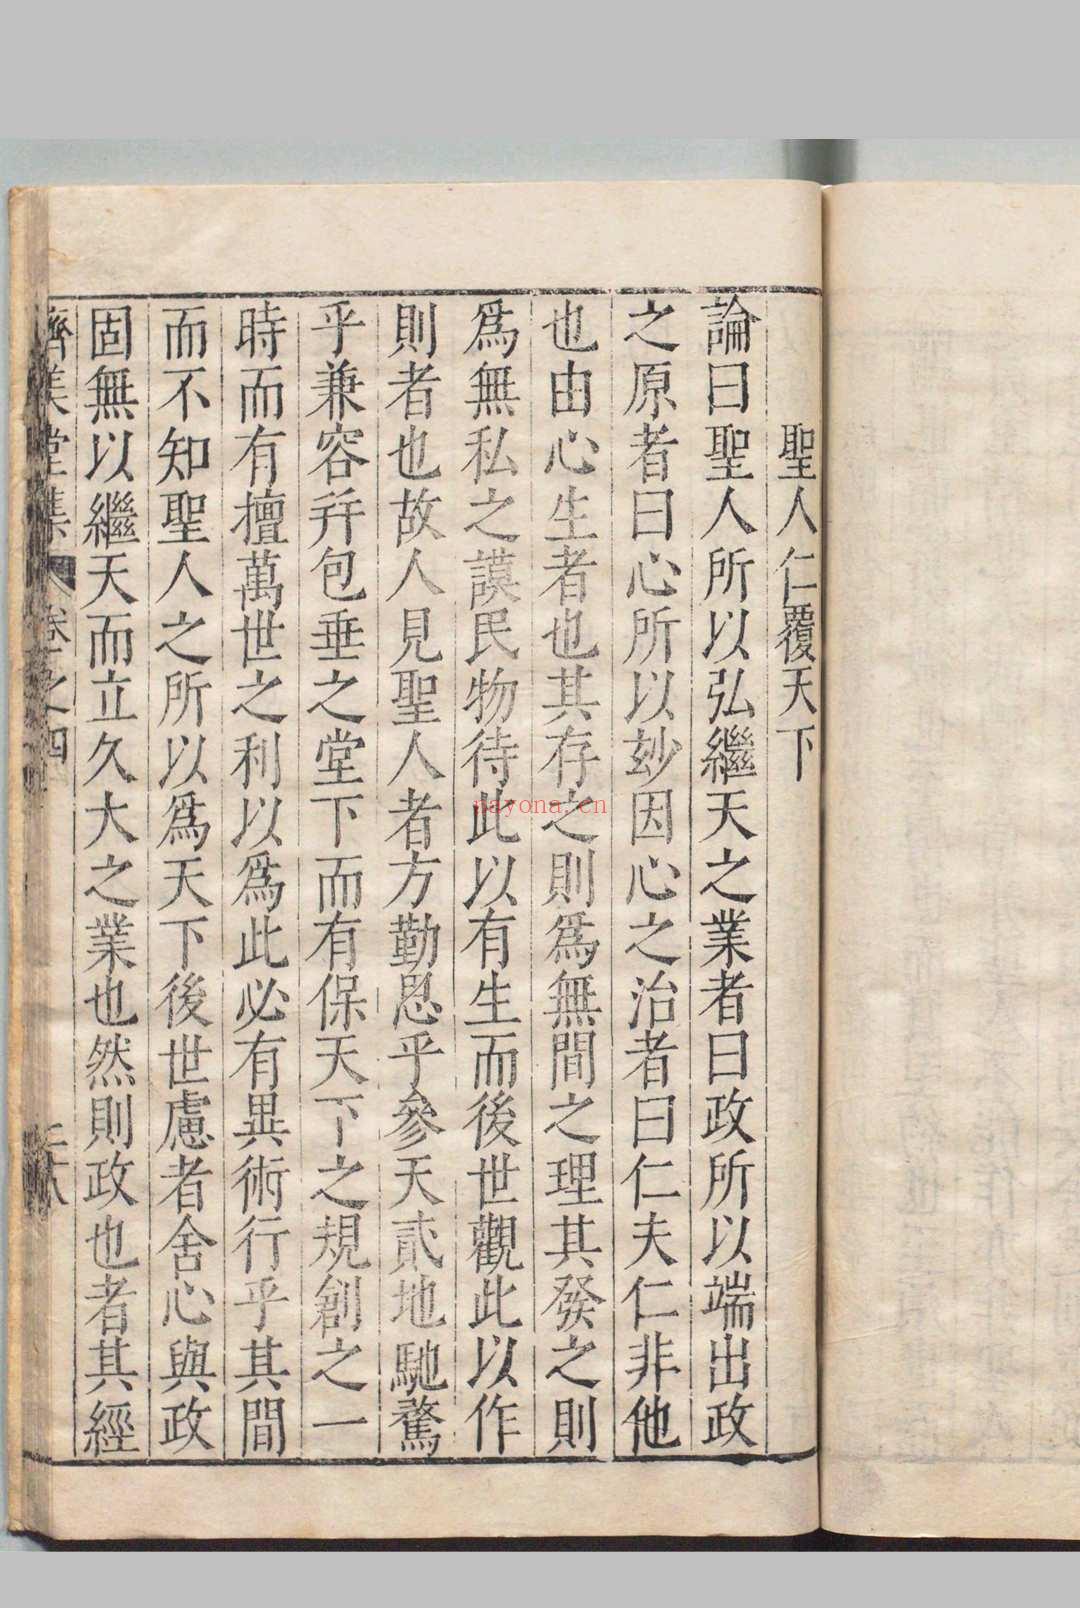 聖人仁覆天下
論曰聖人所以弘繼天之業者曰政所以端出政
之原者曰心所以玅因心之治者曰仁夫仁非他
也由心生者也其存之則爲無間之理其發之則
爲無私之謨民物待此以有生而後世觀此以作
則者也故人見聖人者方勤恩乎參天貳地馳騖
乎兼容幷包垂之堂下而有保天下之規創之一
時而有擅萬世之利以爲此必有異術行乎其間
而不知聖人之所以爲天下後世慮者舍心與政
固無以繼天而立久大之業也然則政也者其經
濟美堂集 卷之四
nayona.cn